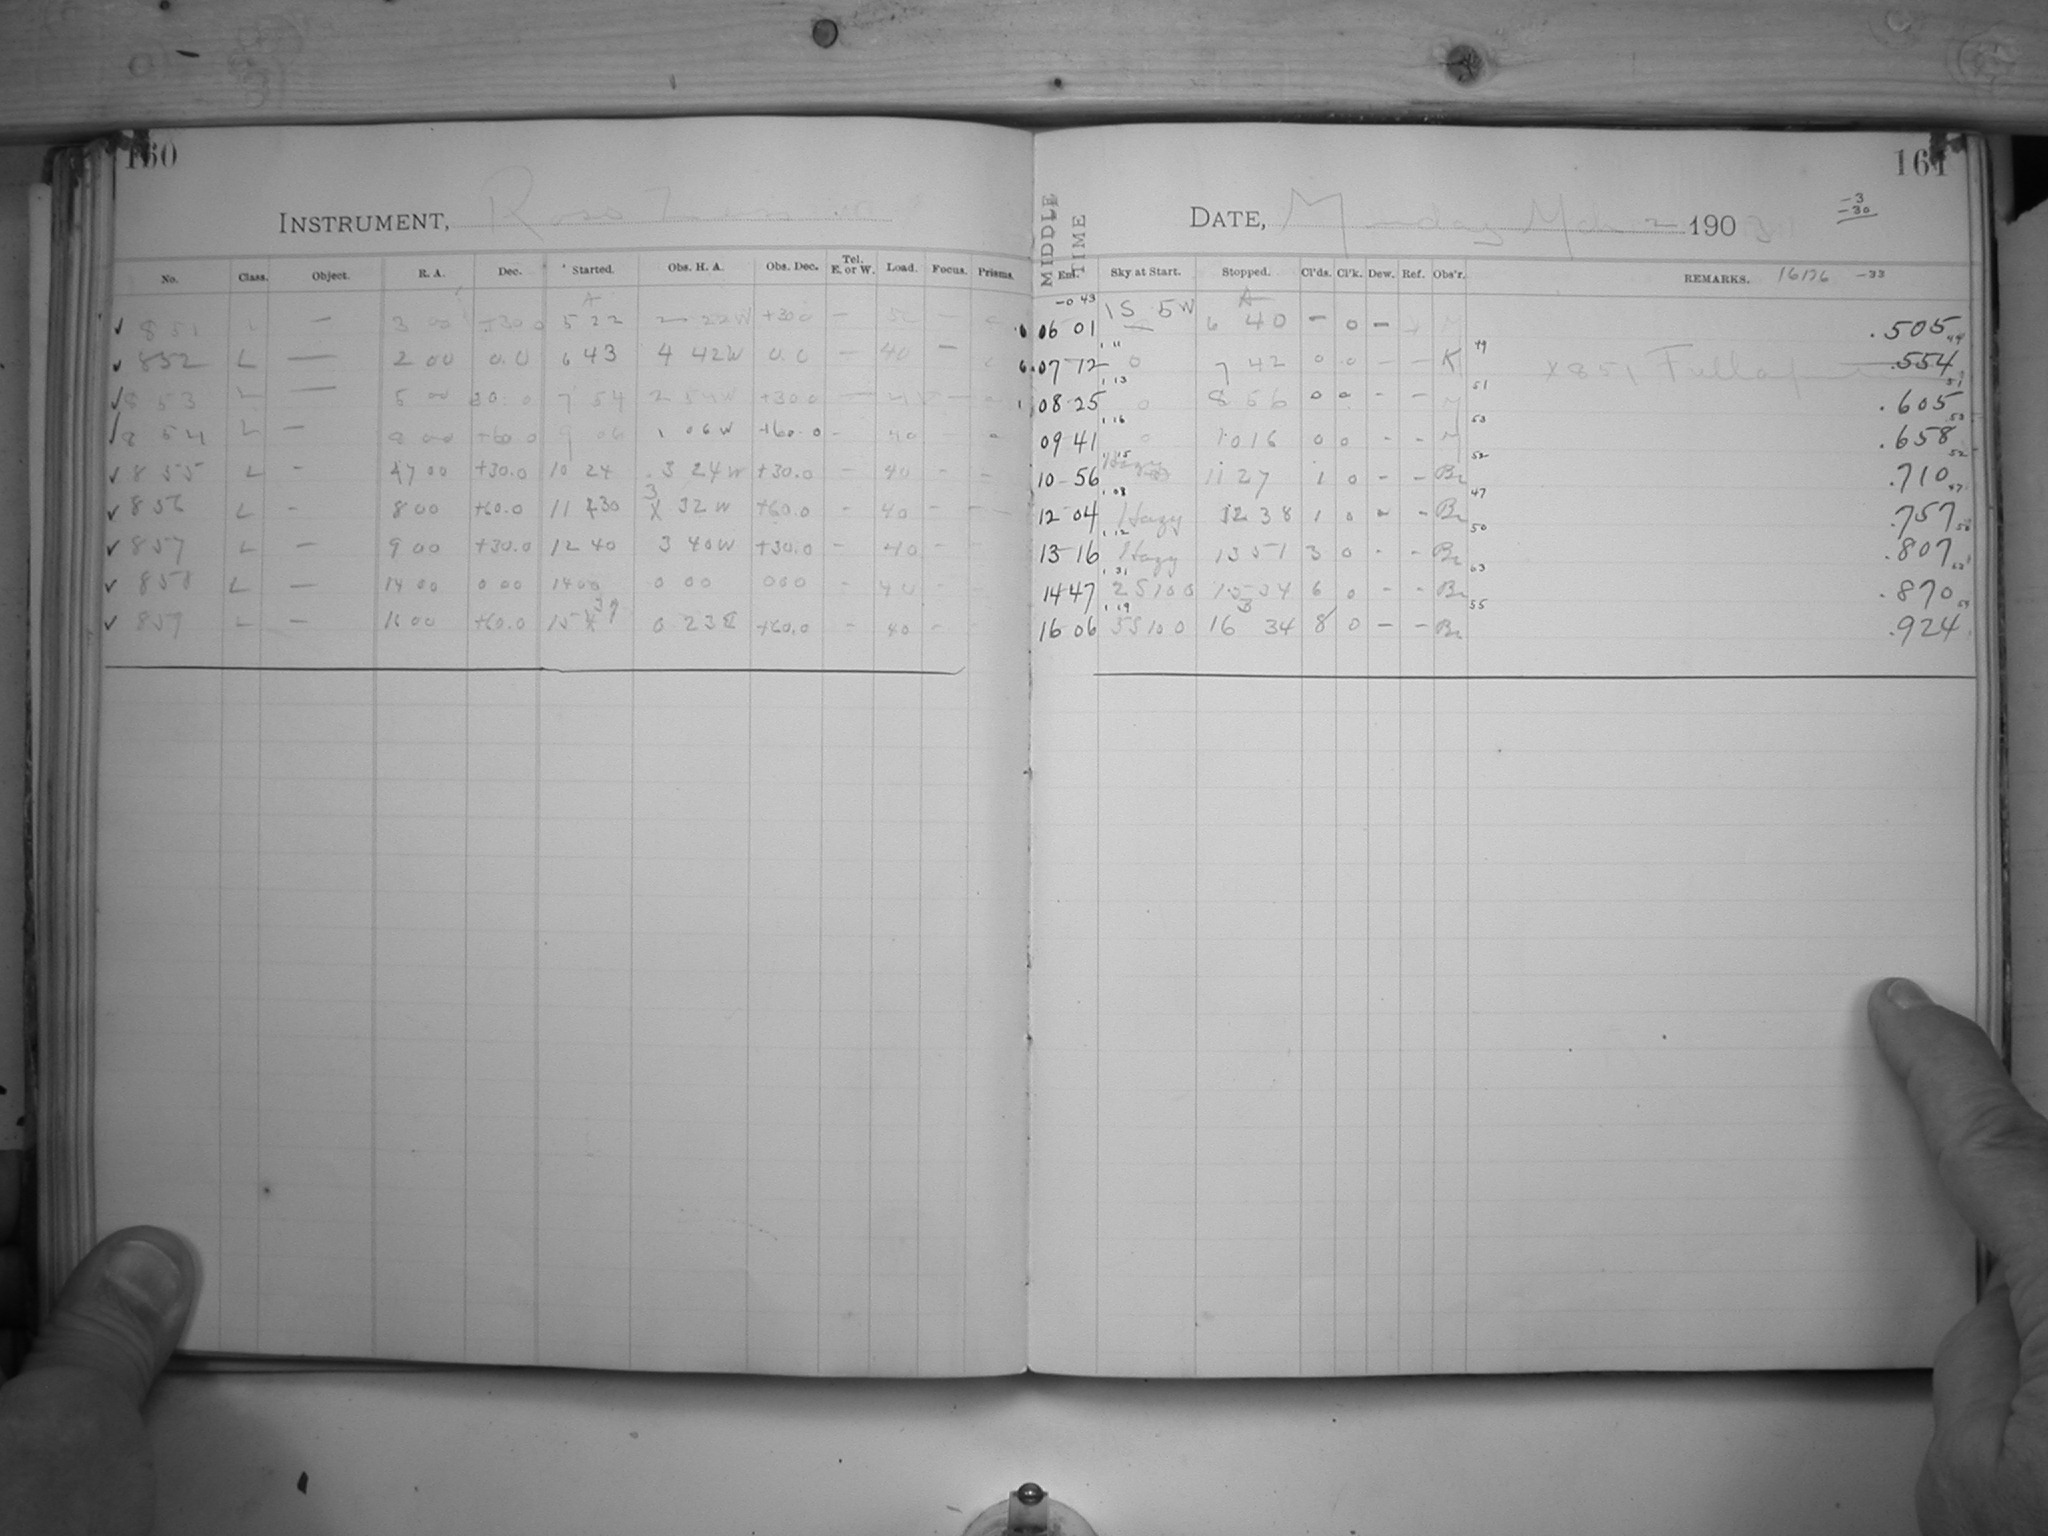 160
INSTRUMENT, Ross Lens
No. Class. Object. R. A. Dec. Started. Obs. H. A. Obs. Dec. Tel. E. or W. Load. Focus. Prisms.
A
✓ 851 L — 3 00 +30 0 5 22 2 22W +30 0 — 50 —
✓ 852 L — 2 00 0.0 6 43 4 42W 0.0 — 40 —
✓ 853 L — 5 00 30.0 7 54 2 54W +30.0 — —
✓ 854 L — 8 00 +60 0 9 06 1 06W +60.0 – 40 –
✓ 855 L – 7 00 +30.0 10 24 3 24W +30.0 – 40 – –
✓ 856 L – 8 00 +60.0 11 30 3 32W +60.0 – 40 – –
✓ 857 L — 9 00 +30.0 12 40 3 40W +30.0 – 40 – –
✓ 858 L — 14 00 0 00 14 00 0 00 000 – 40 – –
✓ 859 L – 16 00 +60.0 15 37 0 23E +60.0 – 40 – –
161
MIDDLE TIME
DATE, Monday Mch 2 1903
-3
-30
-33
Em. Sky at Start. Stopped. Cl'ds. Cl'k. Dew. Ref. Obs'r. REMARKS. 16176
-0 43
06 01 1S 5W 6 40 – 0 – M .505
07 12 0 7 42 0 0 – – K X 851 Full .554
08 25 0 8 56 0 0 – – M .605
09 41 0 10 16 0 0 – – M .658
10 56 Hazy 11 27 1 0 – – Br .710
12 04 Hazy 12 38 1 0 – – Br .757
13 16 Hazy 13 51 3 0 – – Br .807
14 47 2S100 15 34 6 0 – – Br .870
16 06 5S100 16 34 8 0 – – Br .924